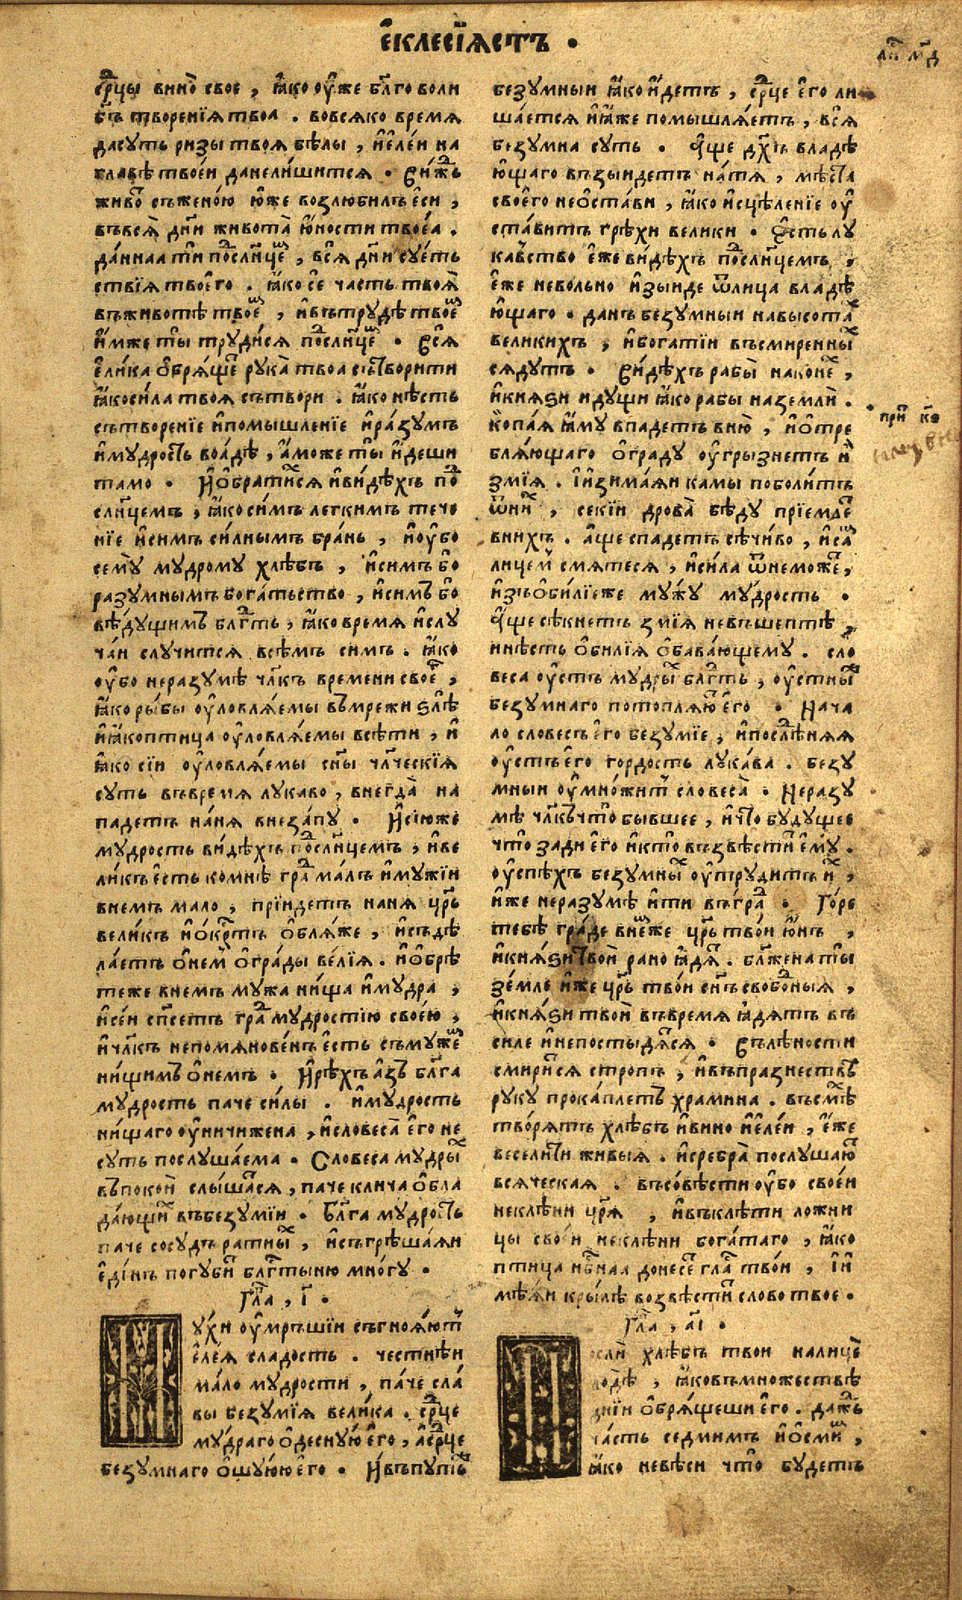 е҆клесїѧстъ •
ср҃цы вино̀ свое , ꙗ҆ко оу҆же бл҃го воли
бъ творенїѧ твоа . вовсѧко времѧ
дасуть ризы твоѧ бѣлы , и҆е҆ле́и на
главѣ твое́и данели́шитсѧ • Ви́жⷣь
живоⷮ съжено́ю ю҆же возлюбилъ е҆си ,
въвсѧ̀ дн҃и живота̀ ю҆ности твое́а .
да́нна ти по́слн҃цеⷨ , всѧ дн҃и суе́ть
ствїѧ твоего̀ . ꙗ҆ко сѐ часть твоѧ̀
въживотѣ твоеⷨ , и҆въ трудѣ твоеⷨ
и҆мже ты̀ труди́сѧ посⷣлн҃цеⷨ • Всѧ
е҆лика ѡ҆брѧщеⷮ рука̀ твоа сътворити
ꙗ҆коси́ла твоѧ сътвори . ꙗ҆ко нѣсть
сътворенїе и҆помышленїе и҆ра́зумъ
и҆мудроⷭть воа́дѣ , а҆може ты̀ и҆де́ши
тамо • И҆ѡ҆брати́хсѧ и҆ви́дѣхъ поⷣ
слн҃цемъ , ꙗ҆коси́мъ легкимъ тече
нїе и҆симъ си́лнымъ бра́нь , и҆оу҆бо
сему̀ мудрому хлѣбъ , и҆симъ бо
разумнымъ бога́тьство , и҆симъ бо
вѣ́дущимъ блгⷣть , ꙗ҆ко времѧ и҆слу
ча́и случитсѧ всѣмъ симъ . ꙗ҆ко
оу҆бо неразумѣ чл҃къ времени своеⷢ ,
ꙗ҆ко ры́бы оу҆ловлѧ́емы въмрежи ѕлѣ
и҆ꙗ҆коптица оу҆ловлѧ́емы всѣти , и҆
ꙗ҆ко сїи оу҆ловлѧ́емы сн҃ы чл҃ческїѧ
суть въвремѧ лукаво , внегда̀ на
падетъ на́нѧ внеза́пу • И҆сїюже
мудрость ви́дѣхъ поⷣслн҃цемъ , и҆ве
ликъ е҆сть комнѣ граⷣ малъ и҆мужїи
внемъ мало , прїидетъ нанѧ цр҃ь
великъ и҆ѡ҆крⷭтъ ѡ҆блѧже , и҆съдѣ
лаетъ ѡ҆немⷨ ѡ҆гра́ды ве́лїѧ . и҆ѡ҆брѣ
теже внемъ мужа ни́ща и҆мудра ,
и҆се́и сп҃сетъ граⷣ мудростїю своею ,
и҆чл҃къ непомѧнове́нъ е҆сть съмужеⷨ
ни́щимъ ѡ҆немъ • И҆рѣхъ а҆зъ бл҃га
мудрость паче си́лы . и҆мудрость
ни́щаго оу҆ничижена , и҆словеса̀ е҆го не
суть послуша́ема • Словеса му́дрыⷯ
въпокои слыша́тсѧ , паче клича ѡ҆бла
да́ющиⷯ въбезу́мїи • Бл҃га мудроⷭть
паче сосудъ ратныⷯ , и҆съгрѣша́ѧи
е҆ди́нъ погубиⷮ блгⷭтыню мно́гу •
Гла҃ , і҃ •
ухи оу҆ме́ршїи съгноѧ́ютъ
е҆ле́ѧ сладость . честнѣи
ма́ло мудрости , паче сла́
вы безу́мїѧ вели́ка . ср҃це
му́драго ѡ҆деснуюе҆го , а҆ср҃це
безумнаго ѡ҆шу́юю е҆го • И҆въпутиⷯ
безумныи ꙗ҆ко и҆́детъ , ср҃це е҆го ли
ша́етсѧ и҆ꙗ҆́же помышлѧ́етъ , всѧ̀
безумна суть • А҆ще дх҃ъ владѣ
ющаго възы́идетъ на́тѧ , мѣ́ста
своего̀ неѡ҆ста́ви , ꙗ҆ко и҆сцѣле́нїе оу҆
ста́витъ грѣхѝ вели́ки • Е҆сть лу
ка́вство е҆же ви́дѣхъ поⷣслн҃цемъ ,
е҆же невольно и҆зы́иде ѿлица владѣ
ющаго • данъ безумныи навысотаⷯ
вели́кихъ , и҆бога́тїи въсмиренныⷯ
сѧ́дутъ • Ви́дѣхъ рабы̀ наконеⷯ ,
и҆кнѧ́ѕи и҆дущи ꙗ҆́ко рабы наземлѝ .
Копа́ѧ ꙗ҆́му впадетъ вню̀ , и҆ѡ҆тре
блѧ́ющаго ѡ҆гра́ду оу҆гры́знетъ иⷯ
змїѧ . І҆изима́ѧи ка́мы поболи́тъ
ѿниⷯ , секїи дрова̀ бѣду̀ прїемлеⷮ
внихъ . а҆ще спадетъ сѣчи́во , и҆саⷨ
лицемⷨ смѧтесѧ , и҆си́ла ѿнеможеⷮ ,
и҆зъѻби́лїеже му́жу му́дрость •
А҆ще сѣкнетъ змїѧ невъшептѣ ,
инѣсть ѡ҆би́лїѧ ѡ҆бава́ющему . сло
веса оу҆стъ мудрыⷯ блгⷣть , оу҆стныⷤ
безумнаго потоплѧ́юⷮ е҆го • Нача
ло словесъ е҆го безу́мїе , и҆послѣ́днѧѧ
оу҆стъ е҆го гордость лука́ва . безу
мныи оу҆множитъ словеса̀ • Неразу
мѣ чл҃къ что̀ бывшее , и҆что̀ бу́дущее
что̀ зади е҆го и҆кто̀ възвѣститъ е҆му̀ .
оу҆спѣхъ безумныⷯ оу҆труди́тъ иⷯ ,
и҆же неразумѣ и҆ти въграⷣ • Го́ре
тебѣ гра́де внеⷨже цр҃ь тво́и ю҆нъ ,
и҆кнѧ́ѕи твои̇ рано ꙗ҆дѧⷮ . бл҃жена ты̀
зе́мле и҆же цр҃ь тво́и сн҃ъ свобоⷣныѧ ,
и҆кнѧ́ѕи твои̇ въвремѧ ꙗ҆дѧтъ въ
силе и҆непостыдѧⷮсѧ • Въ лѣности
смири́тсѧ стропъ , и҆въпразнествⷯ
руку прока́плетъ храмина . въсмѣⷯ
творѧтъ хлѣбъ и҆вино и҆е҆ле́и , е҆́же
весели́ти живыѧ . и҆сребра̀ послушаюⷮ
всѧческаѧ . въсо́вѣсти оу҆бо своеи
неклѣни цр҃ѧ , и҆въклѣти ложни
цы сво́еи неклѣни бога́таго , ꙗ҆ко
птица нбⷭнаа донесеⷮ глаⷭ тво́и , І҆и
мѣ́ѧи крылѣ возвѣститъ слово твое •
Гла҃ , а҃і •
осли хлѣбъ твои налицѐ
водѣ , ꙗ҆ковъмножествѣ
днїи ѡ҆брѧщеши е҆го . да́жⷣь
ча́сть седми́мъ и҆ѡ҆смиⷨ ,
ꙗ҆ко невѣси что̀ будетъ